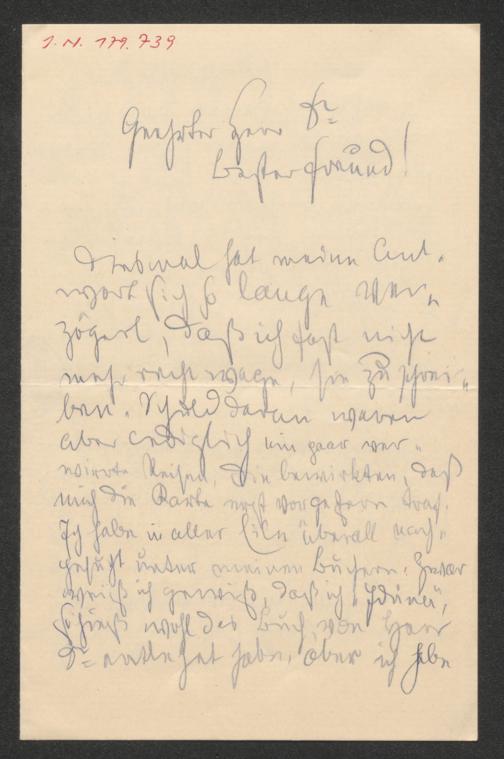 I. N. 179.739
Geehrter Herr Dr
bester Freund!
Diesmal hat meine Ant-
wort sich so lange ver-
zögert, daß ich fast nicht
mehr recht wage, sie zu schrei-
ben. Schuld daran waren
aber lediglich ein paar ver-
wirrte Reisen, die bewirkten, daß
mich die Karte erst vorgestern traf.
Ich habe in aller Eile überall nach-
gesucht unter meinen Büchern. Zwar
weiß ich gewiß, daß ich „Iduna“,
so hieß wohl das Buch, von Herr
Dr entlehnt habe, aber ich habe